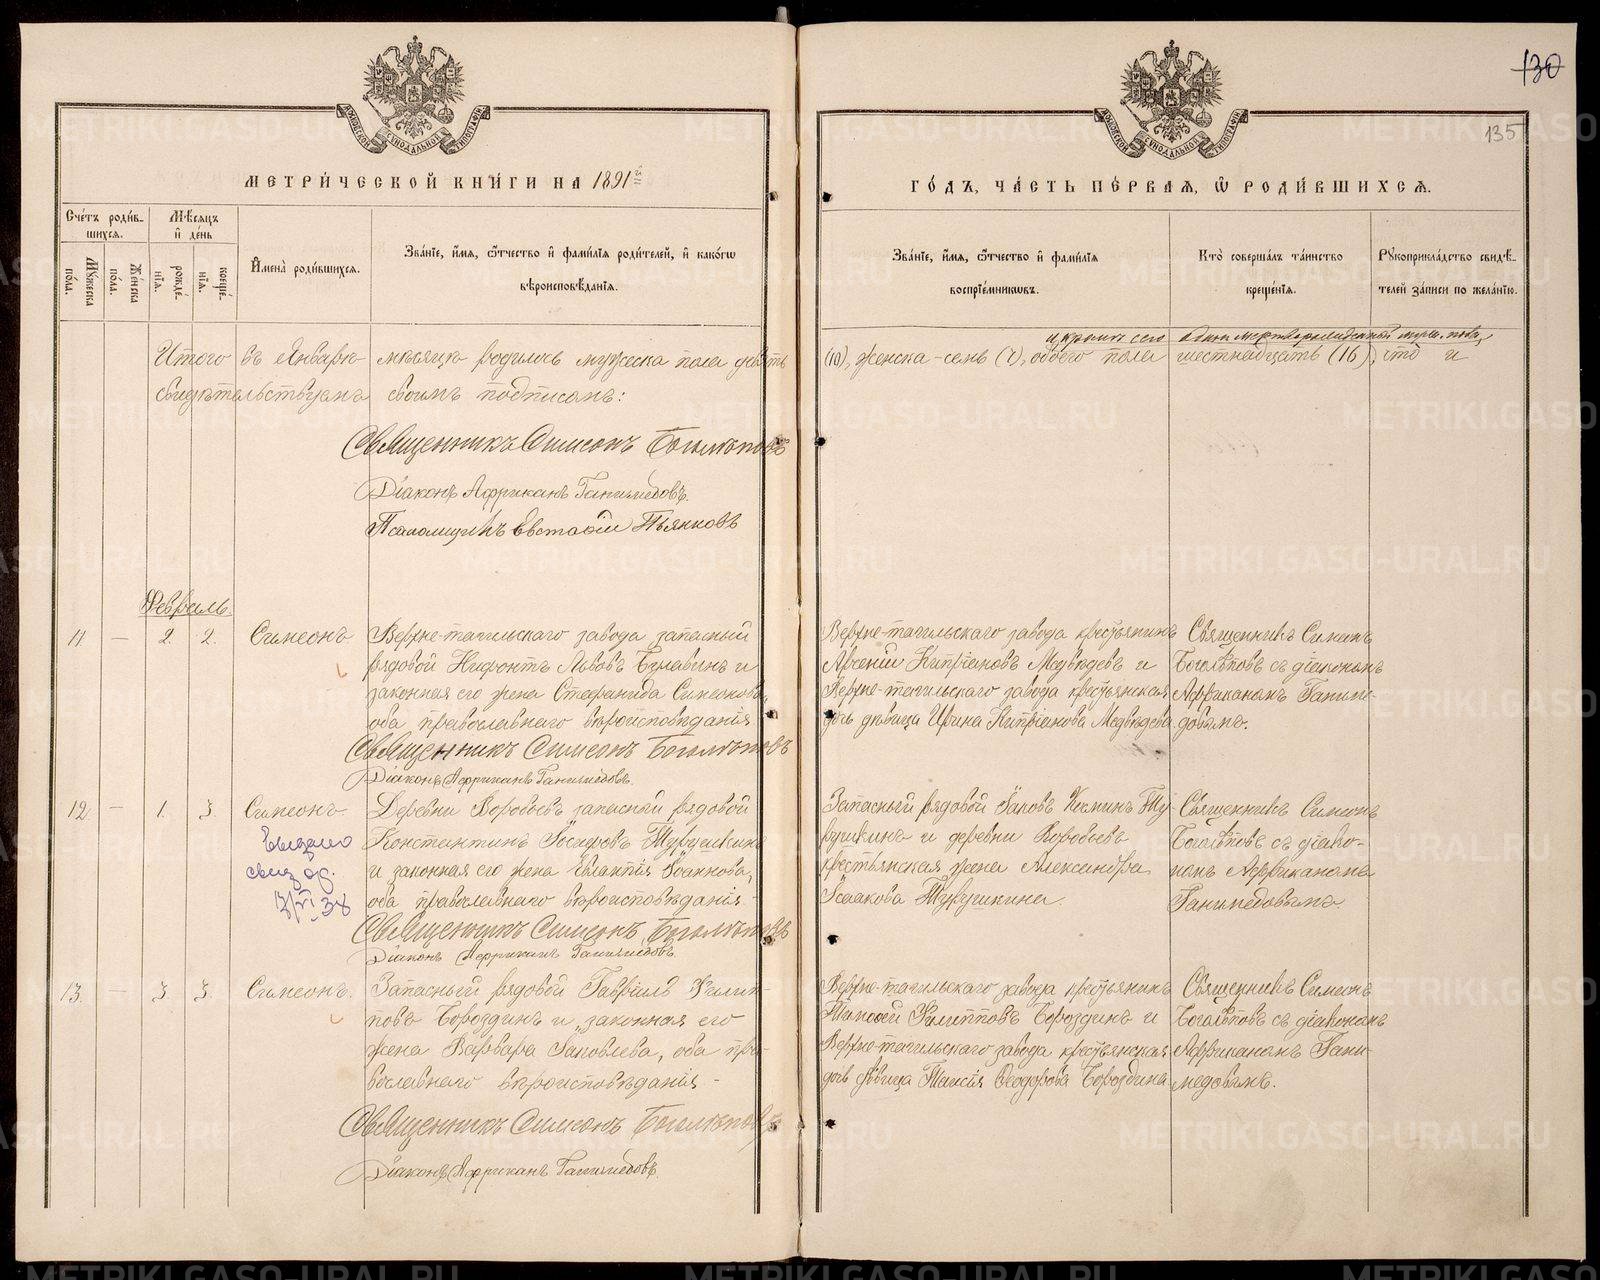 130
135
МОСКОВСКОЙ СѴНОДАЛЬНОЙ ТИПОГРАФІИ
МОСКОВСКОЙ СѴНОДАЛЬНОЙ ТИПОГРАФІИ
МЕТРИ́ЧЕСКОЙ КНИ́ГИ НА 1891й
ГО́ДЪ, ЧА́СТЬ ПЕ́РВАЯ, Ѽ РОДИ́ВШИХСѦ.
Сче́тъ роди́в-
шихсѧ.
Мꙋжеска
по́ла.
Же́нска
по́ла.
Мѣ́сѧцъ
и҆ де́нь
рожде́-
нїѧ.
креще́-
нїѧ.
И҆мена̀ роди́вшихсѧ.
Зва́нїе, и҆́мѧ, ѻ҆́тчество и҆ фами́лїѧ роди́телей, и҆ како́гѡ
вѣроисповѣ́данїѧ.
Зва́нїе, и҆́мѧ, ѻ҆́тчество и҆ фами́лїѧ
воспрїе́мникѡвъ.
Кто̀ соверша́лъ та́инство
креще́нїѧ.
Рꙋкоприкла́дство свидѣ́-
телей за́писи по жела́нїю.
Итого въ Январѣ мѣсяцѣ родилось мужеска пола девять
(10), женска - семь (7), обоего пола шестнадцать (16), что и
и кромѣ сего одинъ мертворожденный муж. пола,
свидѣтельствуемъ своимъ подписомъ:
Священникъ Симеонъ Боголѣповъ
Діаконъ Африканъ Ганимедовъ.
Псаломщикъ Евстафій Пьянковъ
Февраль.
11 — 2. 2. Симеонъ
Верхне-тагильскаго завода запасный
рядовой Нифонтъ Львовъ Булавинъ и
законная его жена Стефанида Симеонова,
оба православнаго вѣроисповѣданія
Священникъ Симеонъ Боголѣповъ
Діаконъ Африканъ Ганимедовъ.
Верхне-тагильскаго завода крестьянинъ
Арсеній Кипріановъ Медвѣдевъ и
Верхне-тагильскаго завода крестьянская
дочь дѣвица Ирина Кипріанова Медвѣдева
Священникъ Симеонъ
Боголѣповъ съ діакономъ
Африканомъ Ганиме-
довымъ.
12 — 1. 3. Симеонъ
Выдано
свид.
3/VI 38
Деревни Воробьевъ запасный рядовой
Константинъ Іосифовъ Турушкинъ
и законная его жена Евлампія Іоаннова,
оба православнаго вѣроисповѣданія -
Священникъ Симеонъ Боголѣповъ
Діаконъ Африканъ Ганимедовъ.
Запасный рядовой Іаковъ Косминъ Ту-
рушкинъ и деревни Воробьевъ
крестьянская жена Александра
Исаакова Турушкина.
Священникъ Симеонъ
Боголѣповъ съ діако-
номъ Африканомъ
Ганимедовымъ.
13. — 3. 3. Симеонъ.
Запасный рядовой Гавріилъ Филип-
повъ Бороздинъ и законная его
жена Варвара Іаковлева, оба пра-
вославнаго вѣроисповѣданія -
Священникъ Симеонъ Боголѣповъ
Діаконъ Африканъ Ганимедовъ.
Верхне-тагильскаго завода крестьянинъ
Тимофей Филипповъ Бороздинъ и
Верхне-тагильскаго завода крестьянская
дочь дѣвица Таисія Ѳеодорова Бороздина
Священникъ Симеонъ
Боголѣповъ съ діакономъ
Африканомъ Гани-
медовымъ.
METRIKI.GASO-URAL.RU